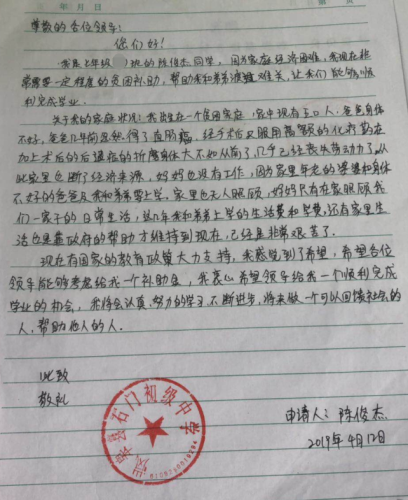 年 月 日 第 页
尊敬的各位领导:
您们好!
我是七年级( )班的陈俊杰同学,因为家庭经济困难,我现在非
常需要一定程度的贫困补助,帮助我和弟弟渡难关,让我们能够顺
利完成学业。
关于我的家庭状况:我出生在一个贫困家庭,家中现有五口人,爸爸身体
不好,爸爸几年前忽然得了直肠癌,经手术后又服用高额的化疗药在
加上术后的后遗症的折磨身体大不如从前了,几乎已经丧失劳动力了,从
此家里也断了经济来源,妈妈也没有工作,因为家里年老的婆婆和身体
不好的爸爸及我和弟弟要上学,家里也无人照顾,妈妈只有在家照顾我
们一家子的日常生活,这几年我和弟弟上学的生活费和学费,还有家里生
活也是靠政府的帮助才维持到现在,已经是非常艰苦了.
现在有国家的教育政策大力支持,我感觉到了希望,希望各位
领导能够考虑给我一个补助金,我衷心希望领导给我一个顺利完成
学业的机会,我将会认真、努力的学习,不断进步,将来做一个可以回馈社会的
人,帮助他人的人.
此致
敬礼
县石门初级中学
申请人:陈俊杰
2019年4月12日